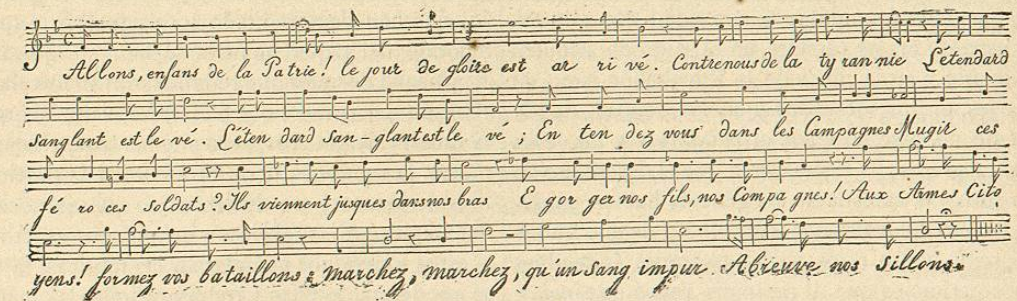 Allons, enfans de la Patrie! le jour de gloire est ar ri vé. Contre nous de la ty ran nie L'étendard
sanglant est le vé. L'éten dard san-glant est le vé; En ten dez vous dans les Campagnes Mugir ces
fé ro ces soldats? Ils viennent jusques dans nos bras E gor ger nos fils, nos Compa gnes! Aux Armes Cito
yens! formez vos bataillons: marchez, marchez, qu'un Sang impur Abreuve nos Sillons.